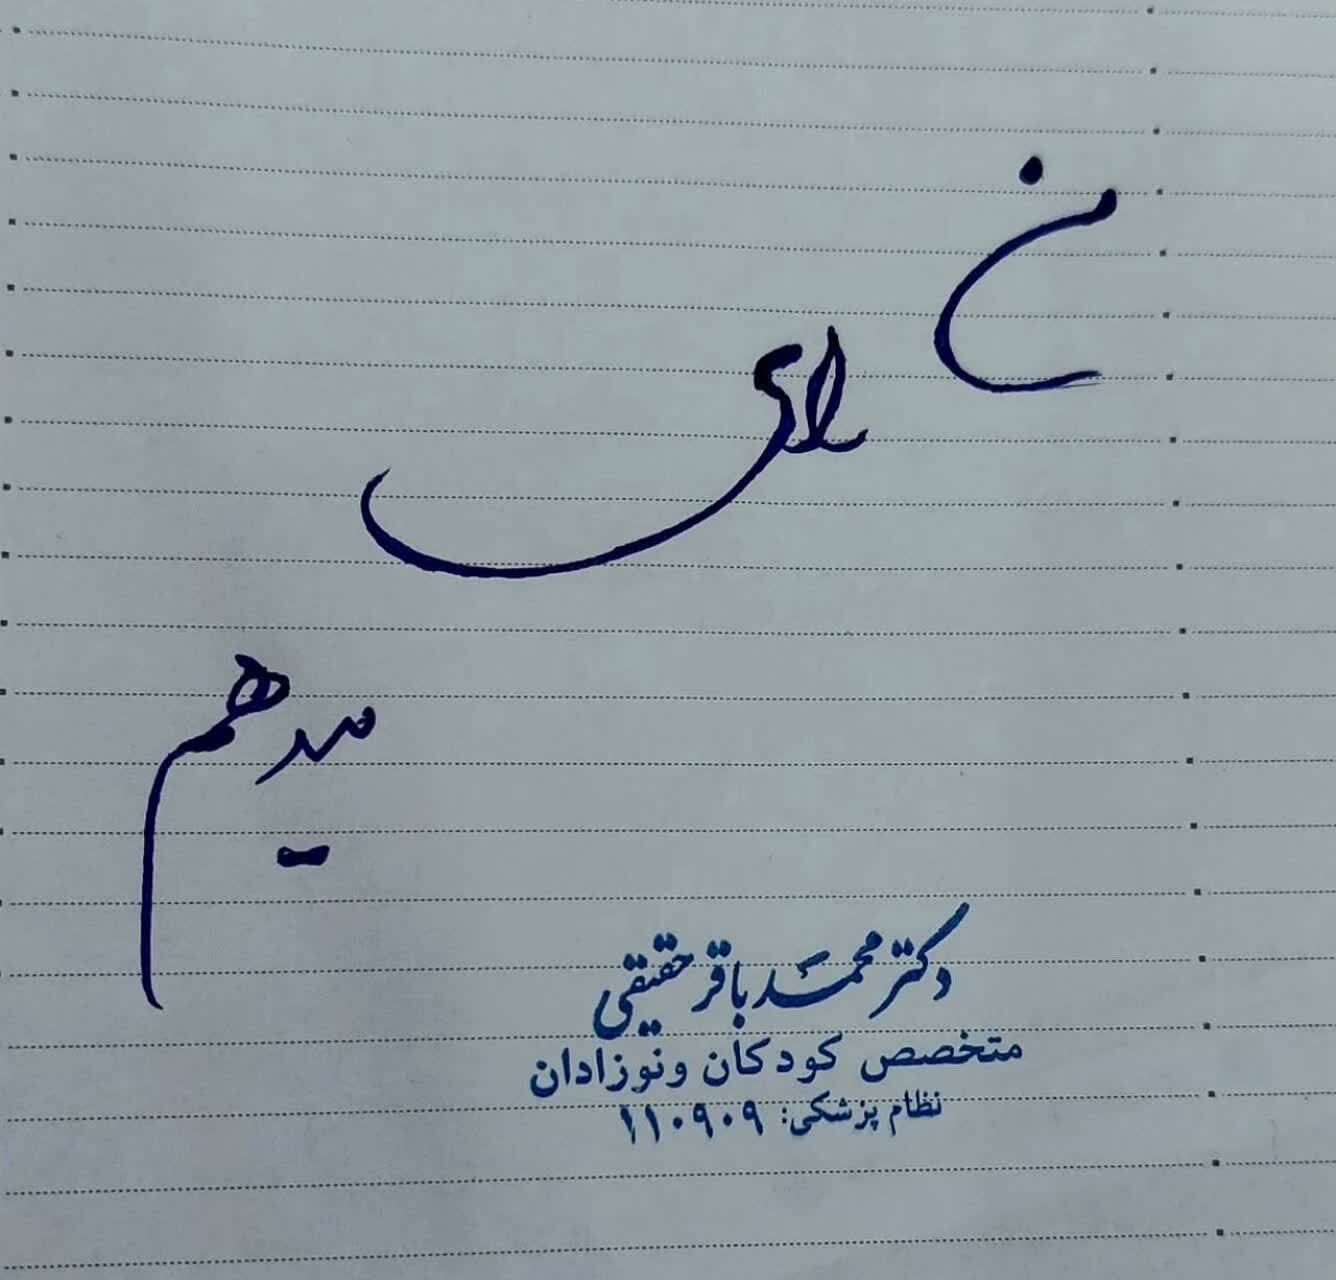 من
رای
میدهم
دکتر محمد باقر حقیقی
متخصص کودکان ونوزادان
نظام پزشکی: ۱۱۰۹۰۹